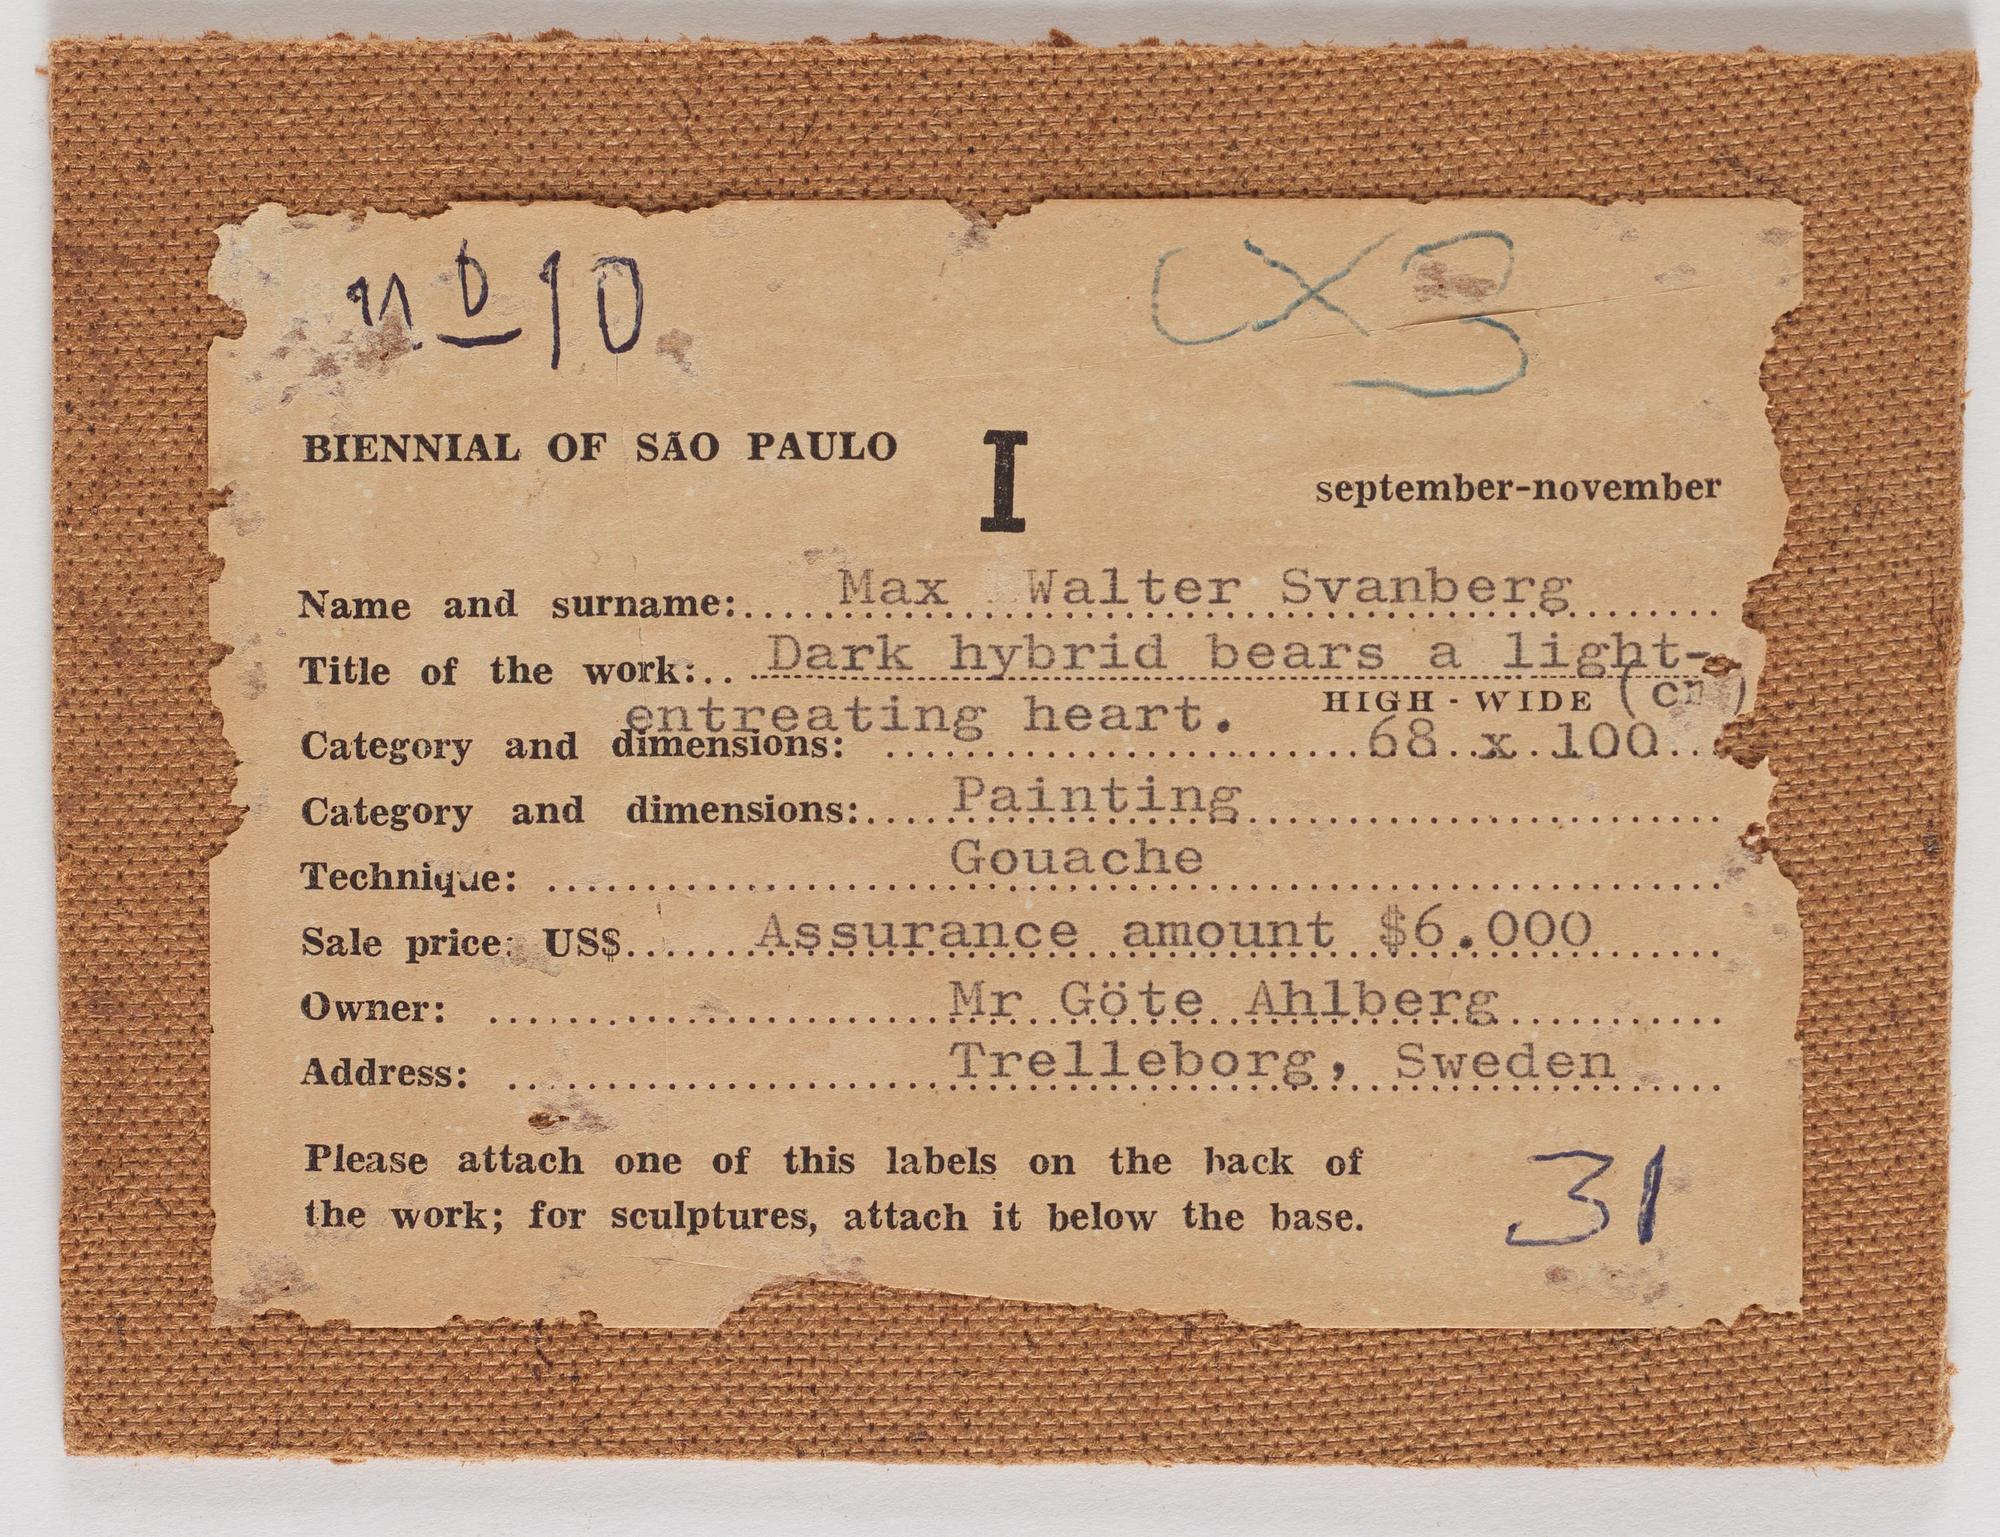 nº 10
BIENNIAL OF SÃO PAULO I
september-november
Name and surname: Max Walter Svanberg
Title of the work: Dark hybrid bears a light-
entreating heart. HIGH - WIDE (cm)
Category and dimensions: 68 x 100
Category and dimensions: Painting
Technique: Gouache
Sale price: US$ Assurance amount $6.000
Owner: Mr Göte Ahlberg
Address: Trelleborg, Sweden
Please attach one of this labels on the back of
the work; for sculptures, attach it below the base.
31